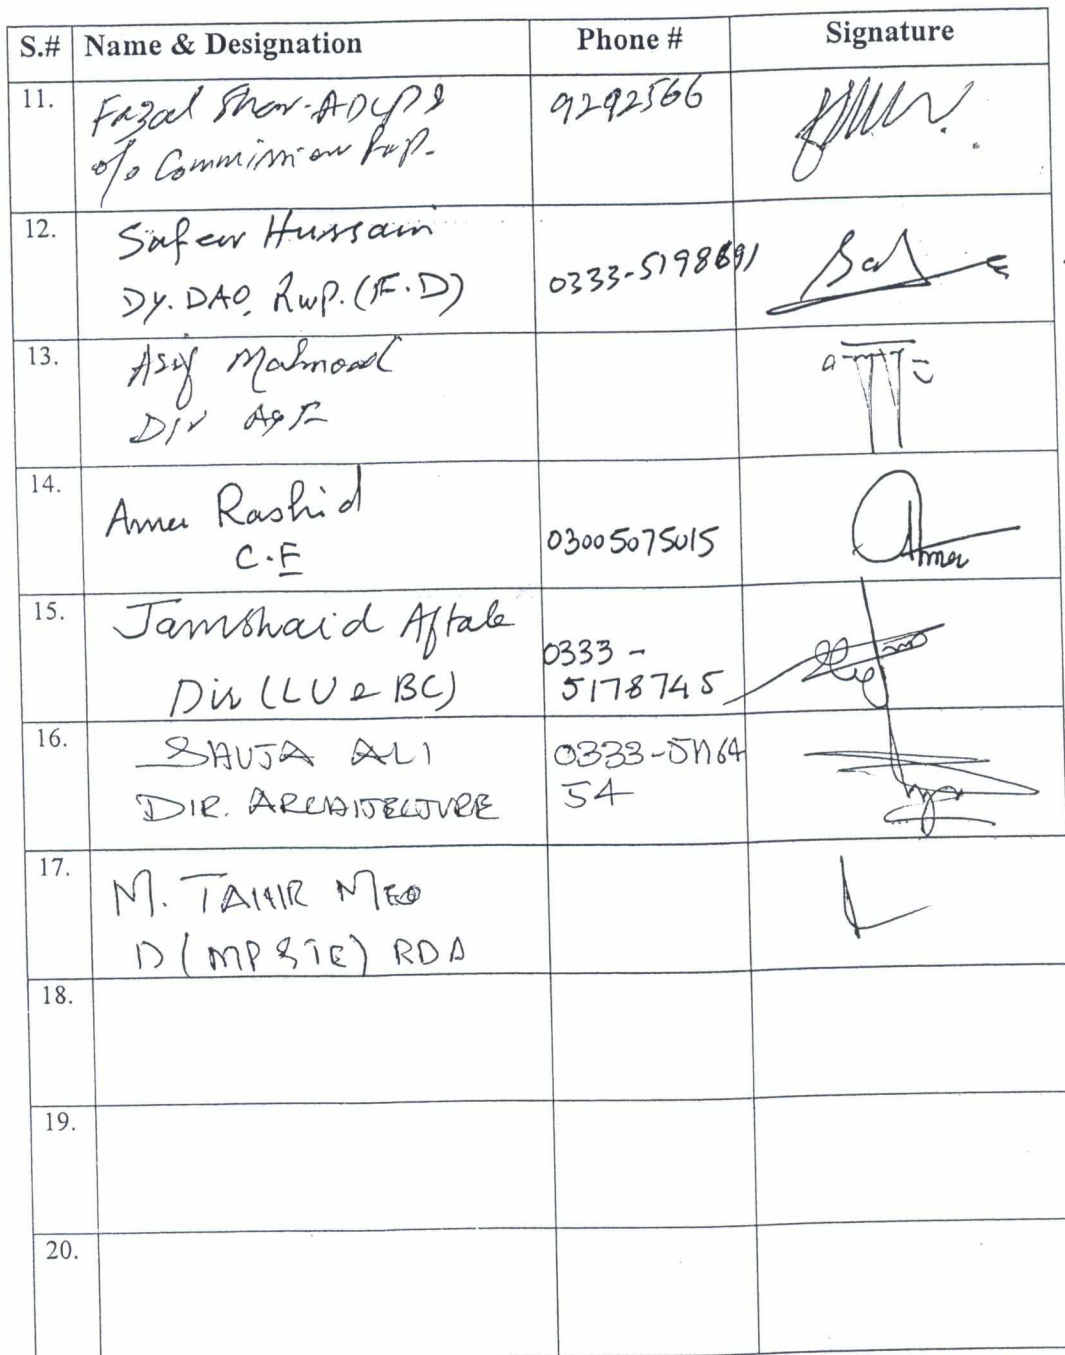 S.# Name & Designation Phone # Signature
11. Fazal Sher-
9292566
o/o Commissioner Rwp.
12. Safeer Hussain
Dy. DAO, Rwp. (F.D) 0333-5198691
13. Asif Mahmood
Dir
14. Amer Rashid
C.E 03005075015 Amer
15. Jamshaid Aftab
0333 -
Dir (LU & BC) 5178745
16. SHUJA ALI 0333-51764
DIR. ARCHITECTURE 54
17. M. TAHIR MEO
D (MP & TE) RDA
18.
19.
20.